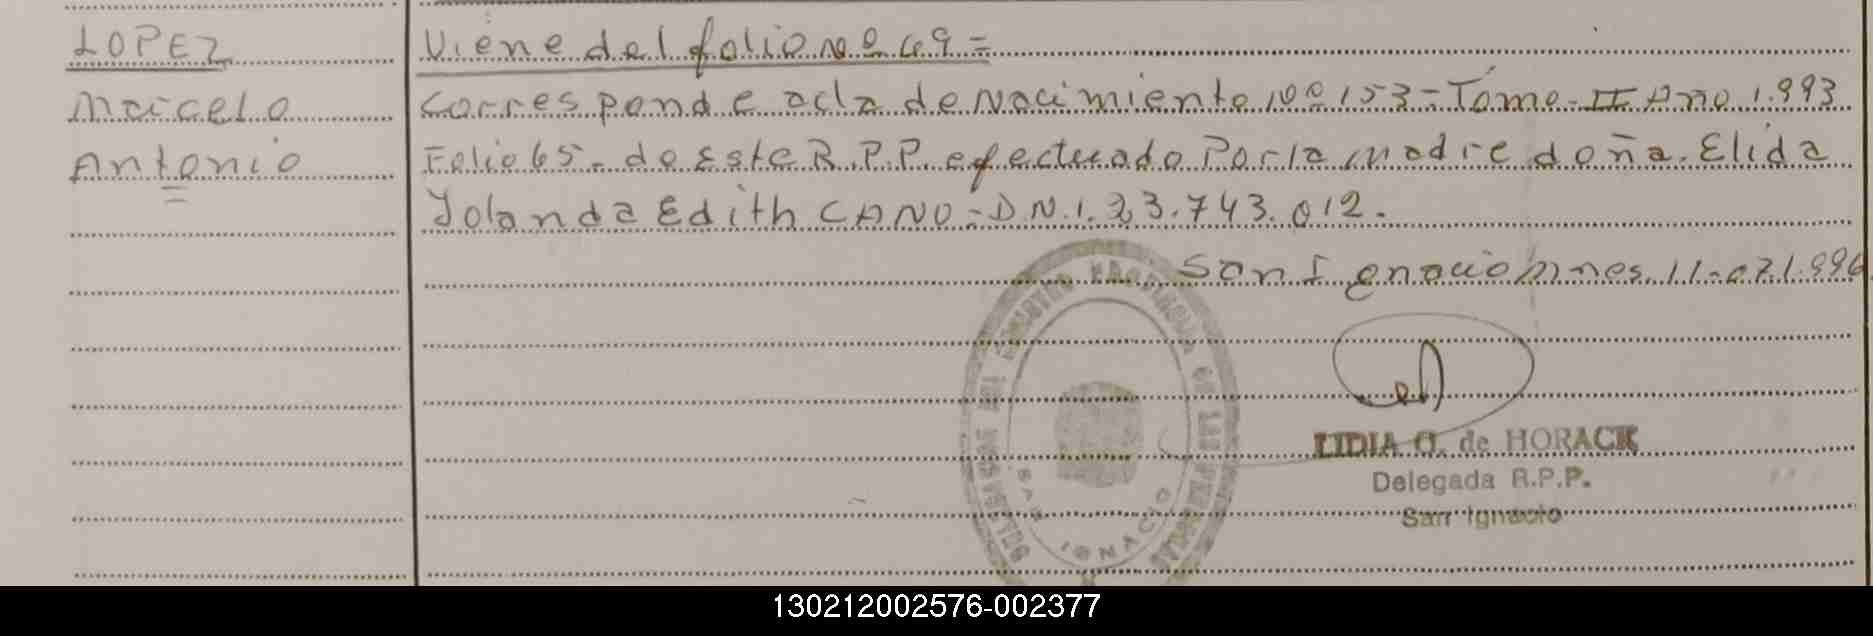 LOPEZ
Marcelo
Antonio
Viene del folio nº 49=
Corresponde acta de Nacimiento nº 153-Tomo-II Año 1.993
Folio 65- de Este R.P.P. efectuado Por la madre doña. Elida
Yolanda Edith CANO-D.N.I. 23.743.012.
San Ignacio Mnes. 11-07.1.996
REGISTRO PROVINCIAL DE LAS PERSONAS
SAN IGNACIO
LIDIA O. de HORACK
Delegada R.P.P.
San Ignacio
130212002576-002377